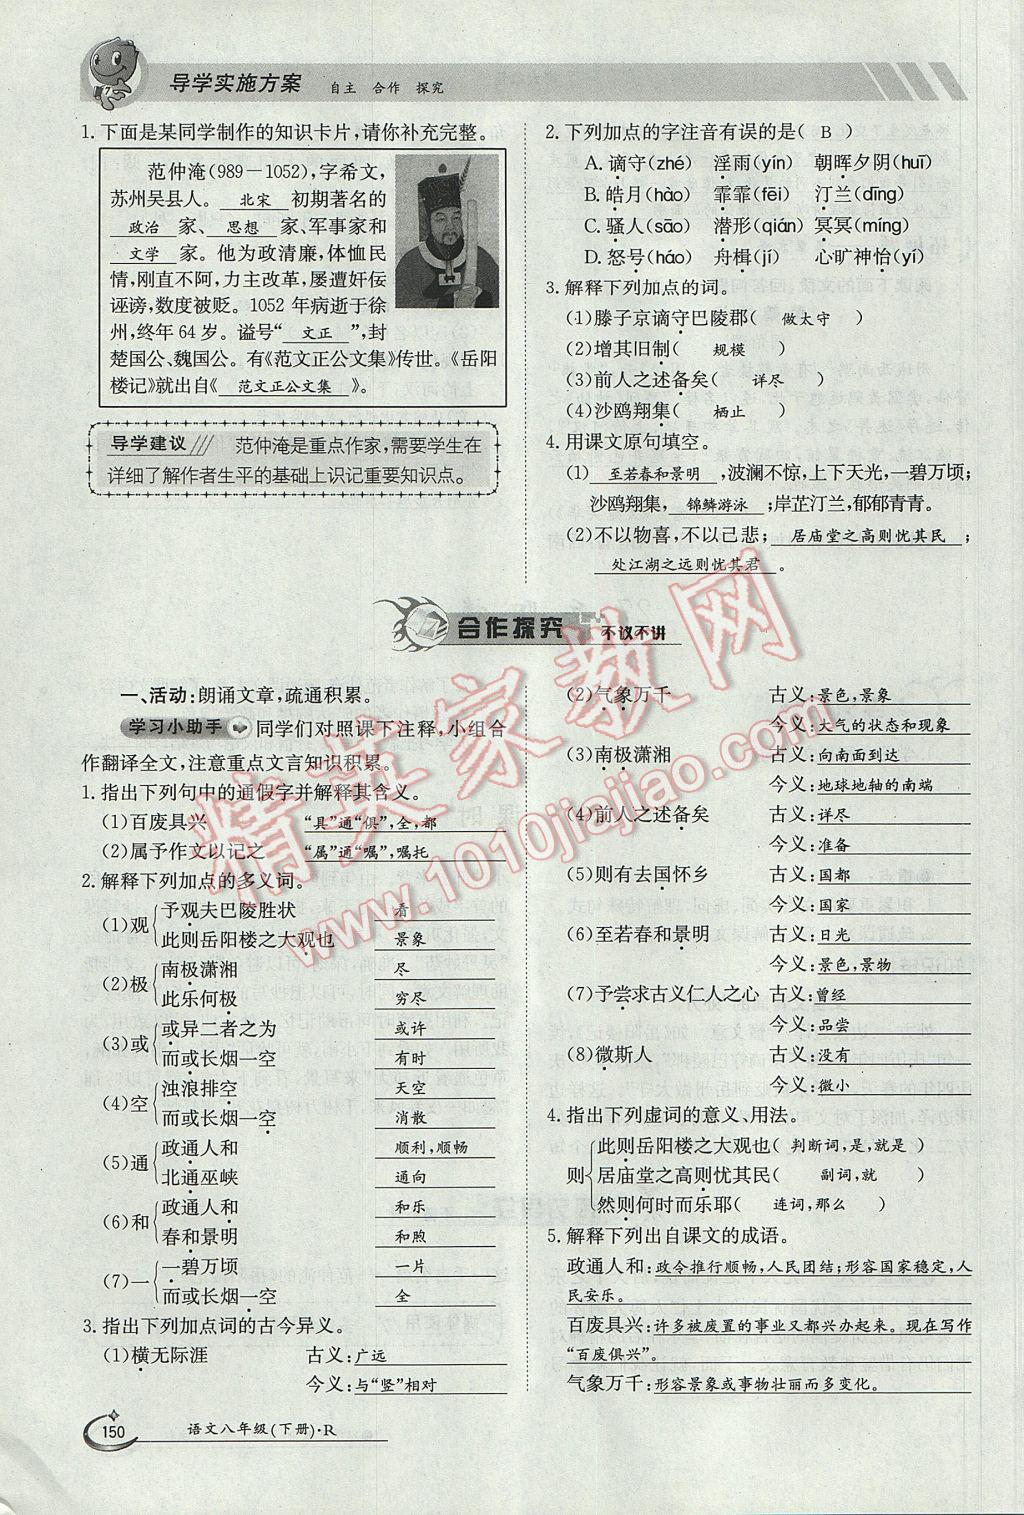 导学实施方案 自主 合作 探究
1.下面是某同学制作的知识卡片,请你补充完整。
范仲淹(989-1052),字希文,
苏州吴县人。 北宋 初期著名的
政治 家、 思想 家、军事家和
文学 家。他为政清廉,体恤民
情,刚直不阿,力主改革,屡遭奸佞
诬谤,数度被贬。1052年病逝于徐
州,终年64岁。谥号“ 文正 ”,封
楚国公、魏国公。有《范文正公文集》传世。《岳阳
楼记》就出自《 范文正公文集 》。
导学建议 范仲淹是重点作家,需要学生在
详细了解作者生平的基础上识记重要知识点。
2.下列加点的字注音有误的是( B )
A.谪守(zhé) 淫雨(yín) 朝晖夕阴(huī)
B.皓月(hào) 霏霏(fēi) 汀兰(dīng)
C.骚人(sāo) 潜形(qián) 冥冥(míng)
D.怒号(háo) 舟楫(jí) 心旷神怡(yí)
3.解释下列加点的词。
(1)滕子京谪守巴陵郡( 做太守 )
(2)增其旧制( 规模 )
(3)前人之述备矣( 详尽 )
(4)沙鸥翔集( 栖止 )
4.用课文原句填空。
(1) 至若春和景明 ,波澜不惊,上下天光,一碧万顷;
沙鸥翔集, 锦鳞游泳 ;岸芷汀兰,郁郁青青。
(2)不以物喜,不以己悲; 居庙堂之高则忧其民 ;
处江湖之远则忧其君 。
合作探究 不议不讲
一、活动:朗诵文章,疏通积累。
学习小助手 同学们对照课下注释,小组合
作翻译全文,注意重点文言知识积累。
1.指出下列句中的通假字并解释其含义。
(1)百废具兴 “具”通“俱”,全,都
(2)属予作文以记之 “属”通“嘱”,嘱托
2.解释下列加点的多义词。
(1)观 予观夫巴陵胜状 看
此则岳阳楼之大观也 景象
(2)极 南极潇湘 尽
此乐何极 穷尽
(3)或 或异二者之为 或许
而或长烟一空 有时
(4)空 浊浪排空 天空
而或长烟一空 消散
(5)通 政通人和 顺利,顺畅
北通巫峡 通向
(6)和 政通人和 和乐
春和景明 和煦
(7)一 一碧万顷 一片
而或长烟一空 全
3.指出下列加点词的古今异义。
(1)横无际涯 古义:广远
今义:与“竖”相对
(2)气象万千 古义:景色,景象
今义:大气的状态和现象
(3)南极潇湘 古义:向南面到达
今义:地球地轴的南端
(4)前人之述备矣 古义:详尽
今义:准备
(5)则有去国怀乡 古义:国都
今义:国家
(6)至若春和景明 古义:日光
今义:景色,景物
(7)予尝求古义仁人之心 古义:曾经
今义:品尝
(8)微斯人 古义:没有
今义:微小
4.指出下列虚词的意义、用法。
则 此则岳阳楼之大观也( 判断词,是,就是 )
居庙堂之高则忧其民( 副词,就 )
然则何时而乐耶( 连词,那么 )
5.解释下列出自课文的成语。
政通人和:政令推行顺畅,人民团结;形容国家稳定,人
民安乐。
百废具兴:许多被废置的事业又都兴办起来。现在写作
“百废俱兴”。
气象万千:形容景象或事物壮丽而多变化。
150 语文八年级(下册)·R
精英家教网
www.1010jiajiao.com